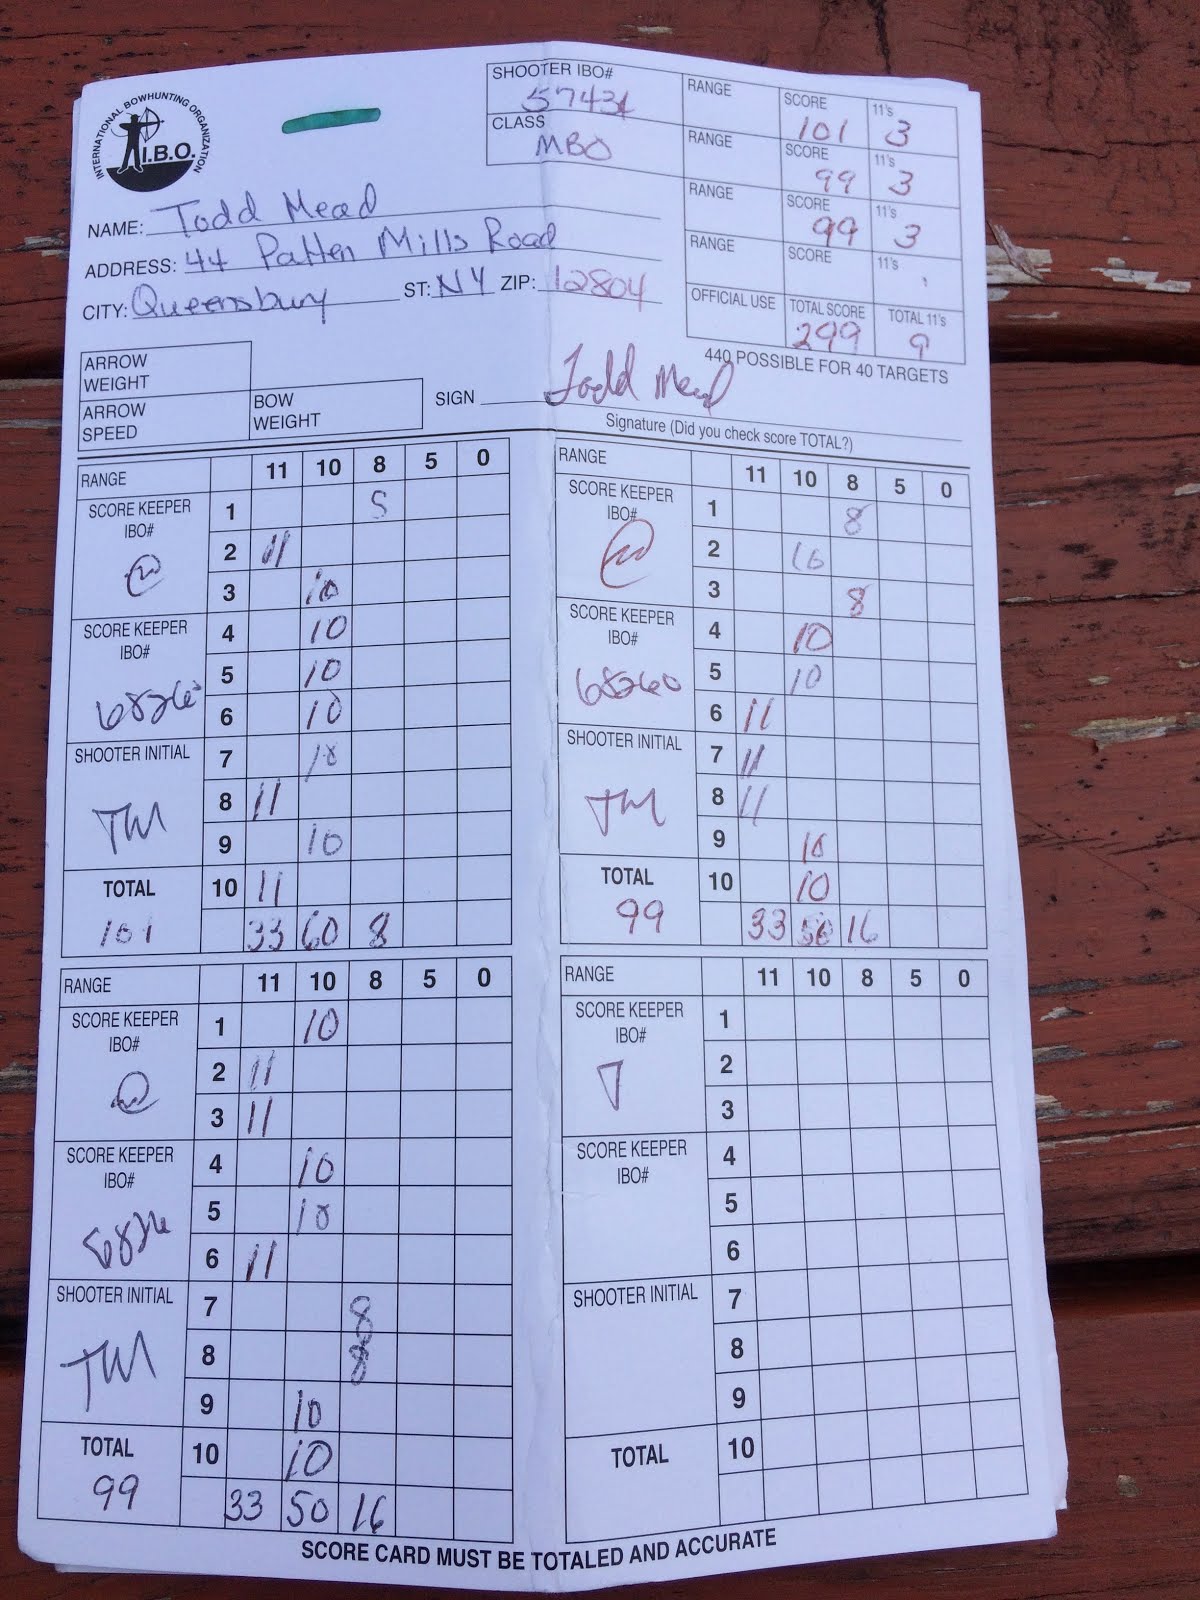 INTERNATIONAL BOWHUNTING ORGANIZATION
I.B.O.
SHOOTER IBO#
CLASS MBO
RANGE SCORE 101 11's 3
RANGE SCORE 99 11's 3
RANGE SCORE 99 11's 3
RANGE SCORE 11's
OFFICIAL USE TOTAL SCORE 299 TOTAL 11's 9
440 POSSIBLE FOR 40 TARGETS
NAME: Todd Mead
ADDRESS: 44 Patten Mills Road
CITY: Queensbury ST: NY ZIP: 12804
ARROW WEIGHT
ARROW SPEED
BOW WEIGHT
SIGN Todd Mead
Signature (Did you check score TOTAL?)
RANGE 11 10 8 5 0
SCORE KEEPER IBO#
1
2 11
3 10
SCORE KEEPER IBO#
4 10
5 10
6 10
SHOOTER INITIAL TM
7 10
8 11
9 10
TOTAL 101
10 11
33 60 8
RANGE 11 10 8 5 0
SCORE KEEPER IBO#
1 8
2 10
3 8
SCORE KEEPER IBO# 68260
4 10
5 10
6 11
SHOOTER INITIAL TM
7 11
8 11
9 10
TOTAL 99
10 10
33 50 16
RANGE 11 10 8 5 0
SCORE KEEPER IBO#
1 10
2 11
3 11
SCORE KEEPER IBO#
4 10
5 10
6 11
SHOOTER INITIAL TM
7 8
8 8
9 10
TOTAL 99
10 10
33 50 16
RANGE 11 10 8 5 0
SCORE KEEPER IBO#
1
2
3
SCORE KEEPER IBO#
4
5
6
SHOOTER INITIAL
7
8
9
TOTAL
10
SCORE CARD MUST BE TOTALED AND ACCURATE